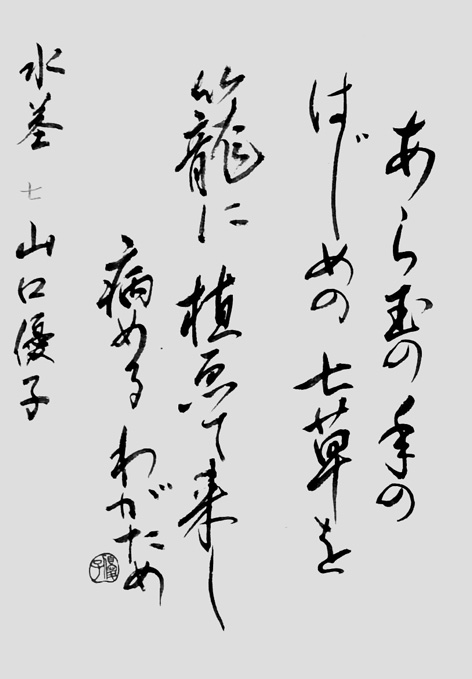 あら玉の年の
はじめの七草を
籠に植ゑて来し
病めるわがため
水茎 七 山口優子
優子